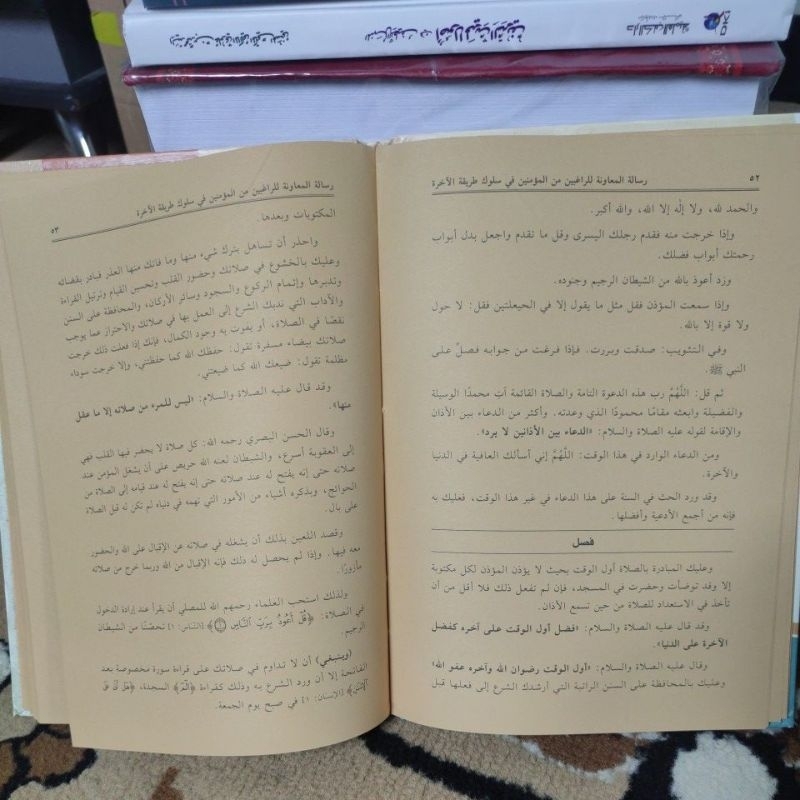 رسالة المعاونة للراغبين من المؤمنين في سلوك طريقة الآخرة
٥٢
والحمد لله، ولا إله إلا الله، والله أكبر.
وإذا خرجت منه فقدم رجلك اليسرى وقل ما تقدم واجعل بدل أبواب
رحمتك أبواب فضلك.
وزد أعوذ بالله من الشيطان الرجيم وجنوده.
وإذا سمعت المؤذن فقل مثل ما يقول إلا في الحيعلتين فقل: لا حول
ولا قوة إلا بالله.
وفي التثويب: صدقت وبررت. فإذا فرغت من جوابه فصلِّ على
النبي ﷺ.
ثم قل: اللَّهُمَّ رب هذه الدعوة التامة والصلاة القائمة آت محمدًا الوسيلة
والفضيلة وابعثه مقامًا محمودًا الذي وعدته. وأكثر من الدعاء بين الأذان
والإقامة لقوله عليه الصلاة والسلام: «الدعاء بين الأذانين لا يرد».
ومن الدعاء الوارد في هذا الوقت: اللَّهُمَّ إني أسألك العافية في الدنيا
والآخرة.
وقد ورد الحث في السنة على هذا الدعاء في غير هذا الوقت، فعليك به
فإنه من أجمع الأدعية وأفضلها.
فصل
وعليك المبادرة بالصلاة أول الوقت بحيث لا يؤذن المؤذن لكل مكتوبة
إلا وقد توضأت وحضرت في المسجد، فإن لم تفعل ذلك فلا أقل من أن
تأخذ في الاستعداد للصلاة من حين تسمع الأذان.
وقد قال عليه الصلاة والسلام: «فضل أول الوقت على آخره كفضل
الآخرة على الدنيا».
وقال عليه الصلاة والسلام: «أول الوقت رضوان الله وآخره عفو الله»
وعليك بالمحافظة على السنن الراتبة التي أرشدك الشرع إلى فعلها قبل
رسالة المعاونة للراغبين من المؤمنين في سلوك طريقة الآخرة
٥٣
المكتوبات وبعدها.
واحذر أن تساهل بترك شيء منها وما فاتك منها العذر فبادر بقضائه
وعليك بالخشوع في صلاتك وحضور القلب وتحسين القيام وترتيل القراءة
وتدبرها وإتمام الركوع والسجود وسائر الأركان، والمحافظة على السنن
والآداب التي ندبك الشرع إلى العمل بها في صلاتك والاحتراز عما يوجب
نقصًا في الصلاة، أو يفوت به وجود الكمال، فإنك إذا فعلت ذلك خرجت
صلاتك بيضاء مسفرة تقول: حفظك الله كما حفظتني، وإلا خرجت سوداء
مظلمة تقول: ضيعك الله كما ضيعتني.
وقد قال عليه الصلاة والسلام: «ليس للمرء من صلاته إلا ما عقل
منها».
وقال الحسن البصري رحمه الله: كل صلاة لا يحضر فيها القلب فهي
إلى العقوبة أسرع، والشيطان لعنه الله حريص على أن يشغل المؤمن عند
صلاته حتى إنه يفتح له عند صلاته حتى إنه يفتح له عند قيامه إلى الصلاة من
الحوائج، ويذكره أشياء من الأمور التي تهمه في دنياه لم تكن له قبل الصلاة
على بال.
وقصد اللعين بذلك أن يشغله في صلاته عن الإقبال على الله والحضور
معه فيها. وإذا لم يحصل له ذلك فإنه الإقبال من الله وربما خرج من صلاته
مأزورًا.
ولذلك استحب العلماء رحمهم الله للمصلي أن يقرأ عند إرادة الدخول
في الصلاة: ﴿قُلْ أَعُوذُ بِرَبِّ النَّاسِ﴾ [الناس: ١] تحصنًا من الشيطان
الرجيم.
(وينبغي) أن لا تداوم في صلاتك على قراءة سورة مخصوصة بعد
الفاتحة إلا أن ورد الشرع به وذلك كقراءة ﴿الٓمٓ﴾ السجدة، ﴿هَلْ أَتَىٰ عَلَى
الإِنسَانِ﴾ [الإنسان: ١] في صبح يوم الجمعة.